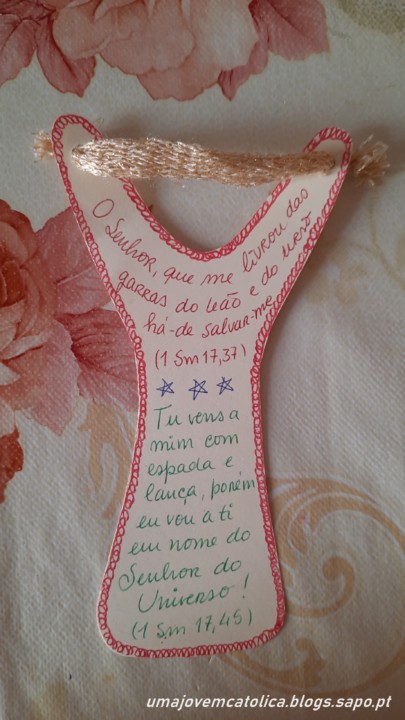 O Senhor, que me livrou das
garras do leão e do urso
há-de salvar-me
(1 Sm 17,37)
Tu vens a
mim com
espada e
lança, porém
eu vou a ti
em nome do
Senhor do
Universo!
(1 Sm 17,45)
umajovemcatolica.blogs.sapo.pt